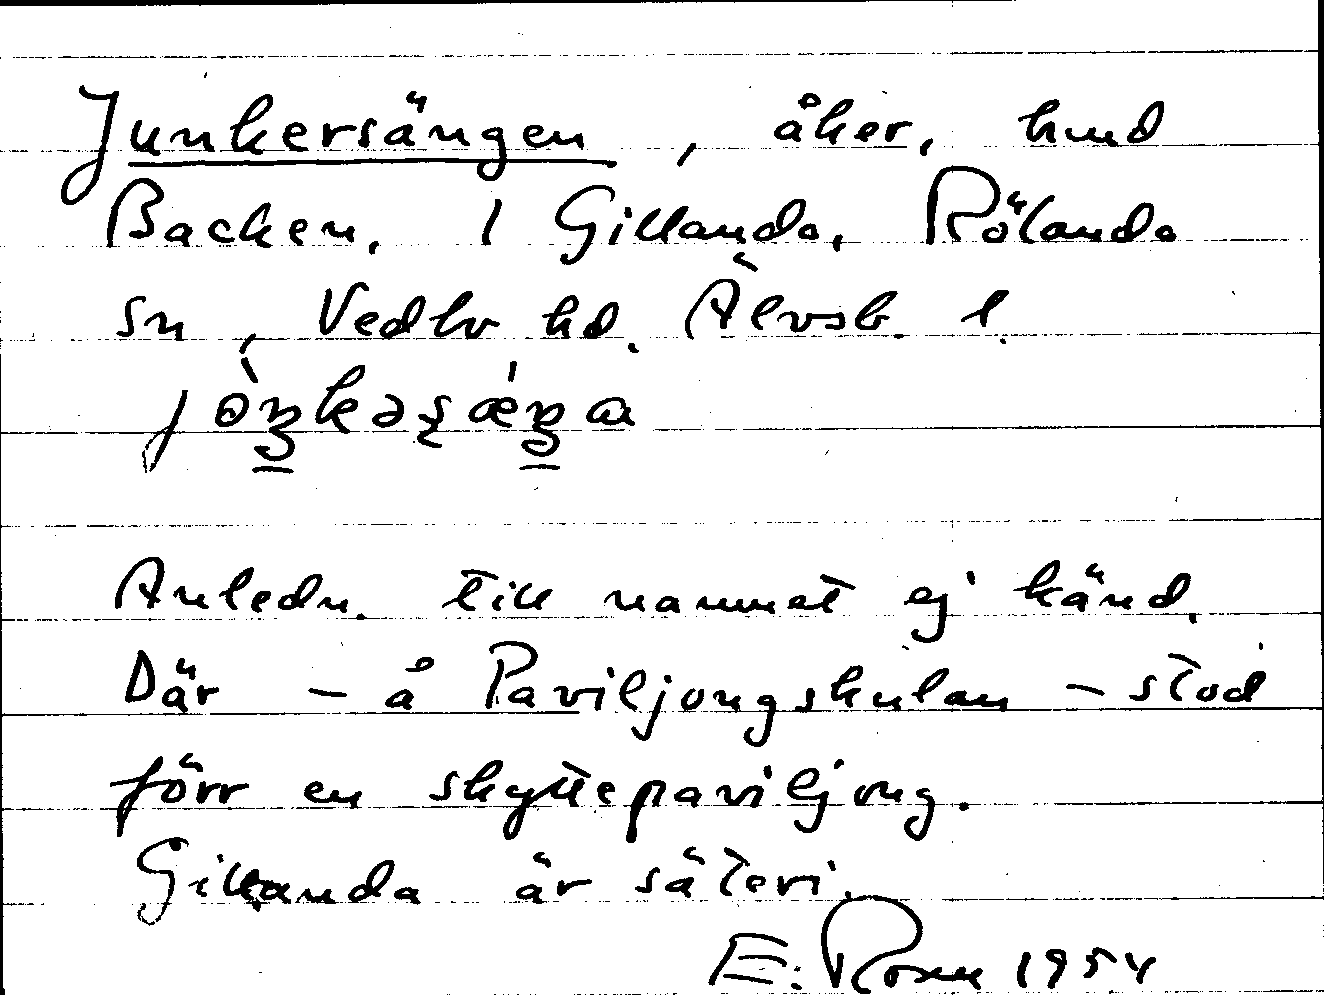 Junkersängen, åker, hmd
Backen, 1 Gillanda, Rölanda
sn, Vedbo hd. Älvsb. l.
Anledn. till namnet ej känd.
Där – å Paviljongskulan – stod
förr en skyttepaviljong.
Gillanda är säteri.
E. Rosén 1954